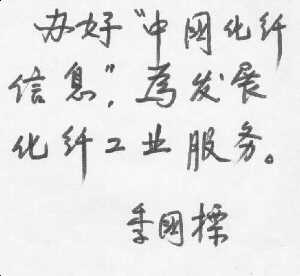 办好“中国化纤
信息”，为发展
化纤工业服务。
季国标